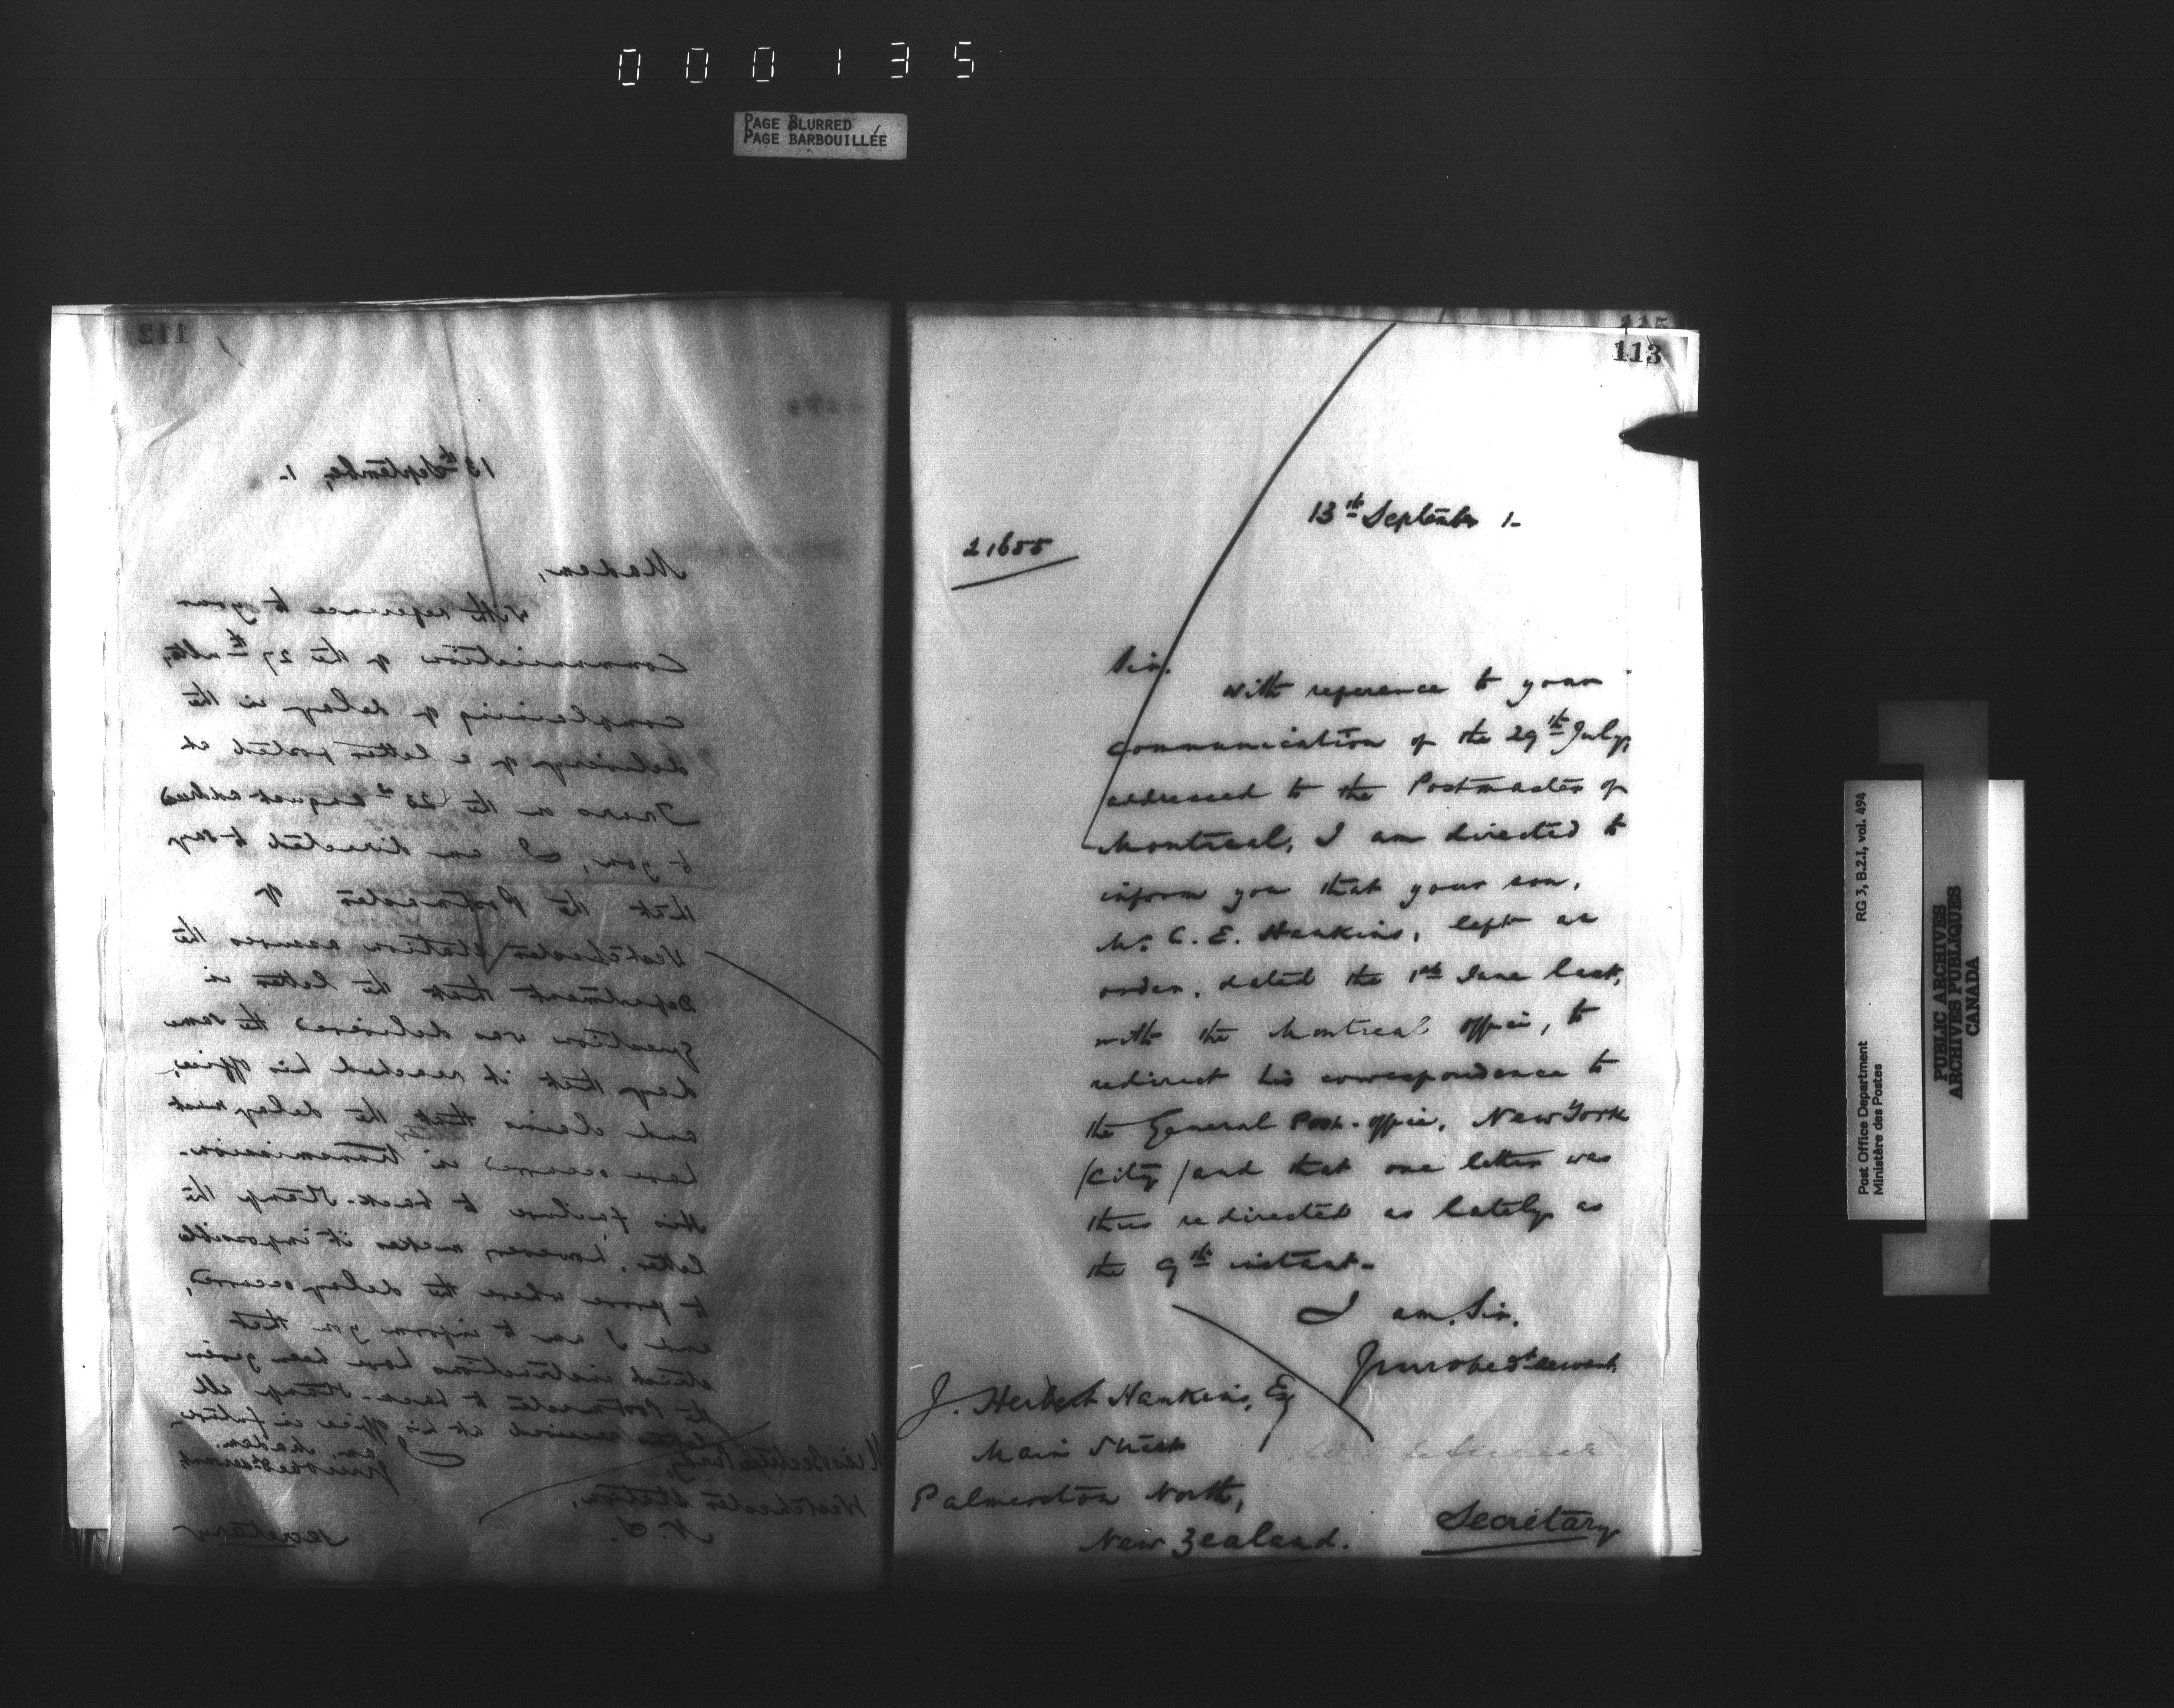 000135
PAGE BLURRED
PAGE BARBOUILLÉE
112
13th September, 1-
Madam,
With reference to your
communication of the 27th ulto,
complaining of delay in the
delivery of a letter posted at
Truro on the 23d August addressed
to you, I am directed to say
that the Postmaster of
Westchester Station assures the
Department that the letter in
question was delivered the same
day that it reached his office,
and claims that the delay must
have occurred in transmission.
His failure to back-stamp the
letter, however, makes it impossible
to prove where the delay occurred,
and I am to inform you that
strict instructions have been given
the Postmaster to back-stamp all
letters received at his office in future.
I am, Madam,
Your obedt servant,
Miss
Westchester Station,
N.S.
Secretary
115
113
13th September 1-
21655
Sir,
With reference to your
communication of the 29th July,
addressed to the Postmaster of
Montreal, I am directed to
inform you that your son,
Mr. C. E. Hankins, left an
order, dated the 1st June last,
with the Montreal office, to
redirect his correspondence to
the General Post-office, New York
(City) and that one letter was
thus redirected as lately as
the 9th instant-
I am, Sir,
Your obedt servant,
J. Herbert Hankins, Esq
Main Street
Palmerston North,
New Zealand.
Secretary
Post Office Department
Ministère des Postes
RG 3, B.2.1, vol. 494
PUBLIC ARCHIVES
ARCHIVES PUBLIQUES
CANADA